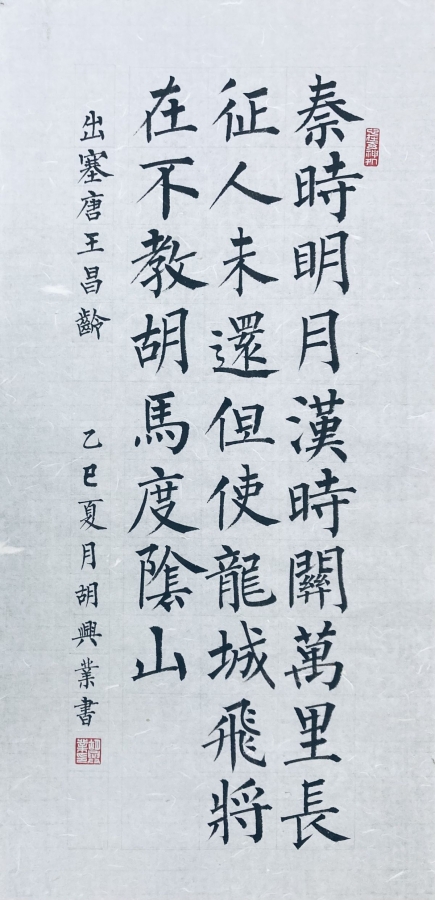 秦時明月漢時關萬里長
征人未還但使龍城飛將
在不教胡馬度陰山
出塞唐王昌齡
乙巳夏月胡興業書